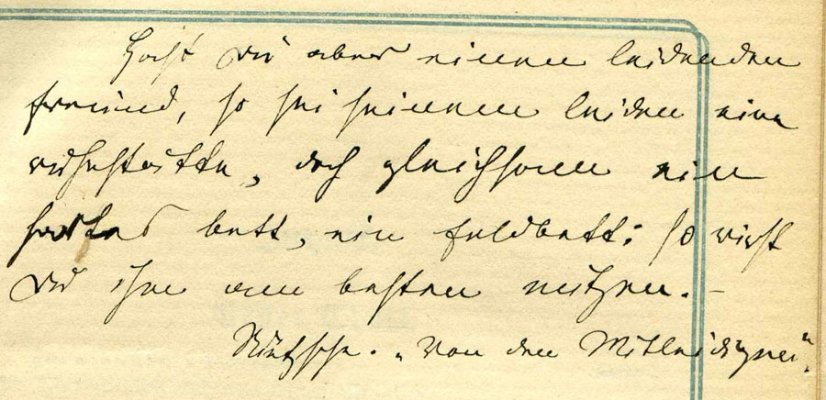 hast du aber einen leidenden
freund, so sei seinem leiden eine
ruhestätte, doch gleichsam ein
hartes bett, ein feldbett: so wirst
du ihm am besten nützen. –
Nietzsche. „Von den Mitleidigen“.